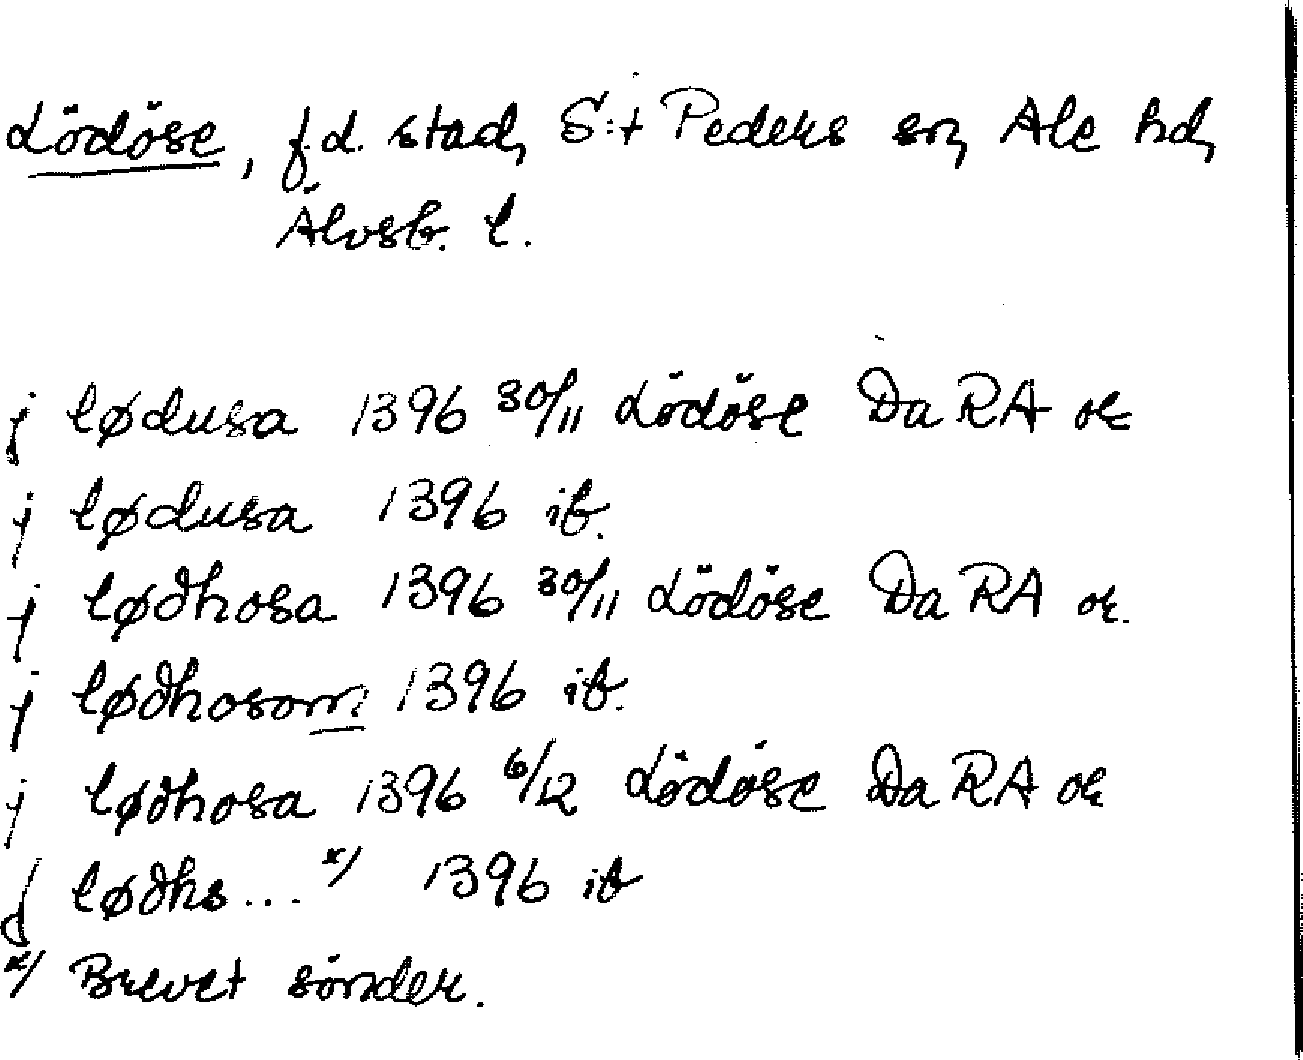 Lödöse, f.d. stad, S:t Peders sn, Ale hd,
Älvsb. l.
j lødusa 1396 30/11 Lödöse DaRA or
j lødusa 1396 ib.
j løðhosa 1396 30/11 Lödöse DaRA or.
j løðhosom 1396 ib.
j løðhosa 1396 6/12 Lödöse DaRA or
j løðhs... x/ 1396 ib
x/ Brevet sönder.